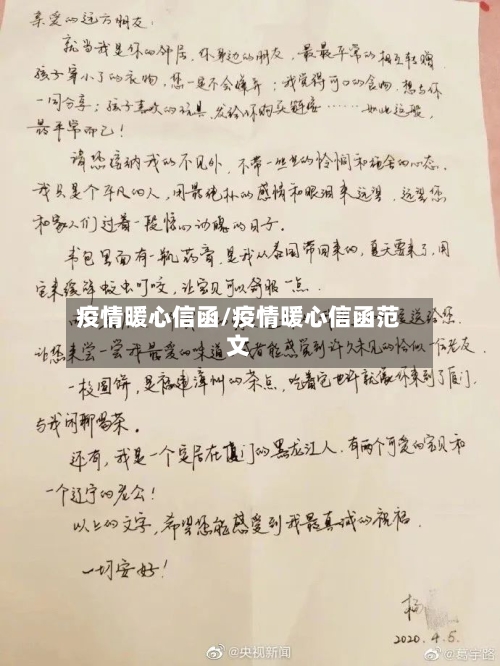 亲爱的远方朋友:
就当我是你的邻居,你身边的朋友,最最平常的相互转赠,
孩子穿小了的衣物,您一定不会嫌弃;我觉得可口的食物,想与你
一同分享;孩子喜欢的玩具,发给你购买链接……如此这般,
最平常而已!
请您接纳我的不见外,不带一丝丝的怜悯和施舍的心态。
我只是个平凡的人,用最纯朴的感情和眼泪来远望,远望您
和家人们过着一段惊心动魄的日子。
书包里面有一瓶药膏,是我从泰国带回来的,夏天要来了,用
它来缓解蚊虫叮咬,让宝贝可以舒服一点。
疫情暖心信函/疫情暖心信函范
文
送给您,
让您来尝一尝我最爱的味道,者能感受到许久未见的恰似一位老友。
一枚圆饼,是福建漳州的茶点,吃着它也许就像你来到了厦门,
与我闲聊喝茶。
还有,我是一个定居在厦门的黑龙江人,有两个可爱的宝贝和
一个辽宁的老公!
以上的文字,希望您能感受到我最真诚的祝福。
一切安好!
杨
2020.4.5.
@央视新闻
@葛宇路